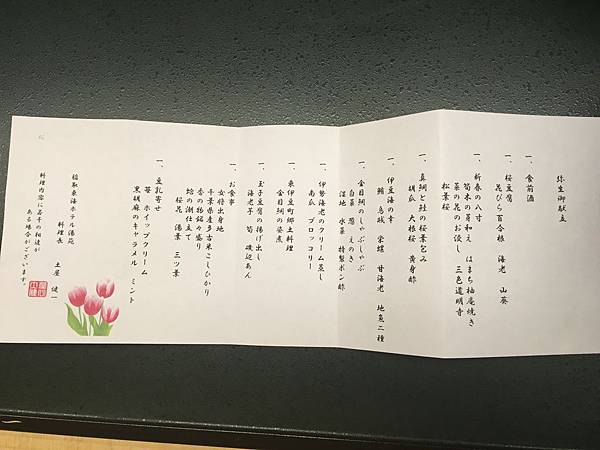 弥生御献立
一、食前酒
一、桜豆腐
花びら百合根 海老 山葵
一、新春の八寸
筍木の芽和え はまち柚庵焼き
菜の花のお浸し 三色道明寺
松葉桜
一、真鯛と鮭の桜葉包み
胡瓜 大根桜 黄身酢
一、伊豆海の幸
鮪 烏賊 栄螺 甘海老 地魚二種
一、金目鯛のしゃぶしゃぶ
白菜 葱 えのき
湿地 水菜 特製ポン酢
一、伊勢海老のクリーム蒸し
南瓜 ブロッコリー
一、東伊豆町郷土料理
金目鯛の姿煮
一、玉子豆腐の揚げ出し
海老子 筍 磯辺あん
一、お食事
女将出身地
千葉県産多古米こしひかり
香の物銘々盛り
蛤の潮仕立て
桜花 湯葉 三ツ葉
一、豆乳寄せ
苺 ホイップクリーム
黒胡麻のキャラメル ミント
稲取東海ホテル湯苑
料理長 土屋 健一
料理内容に若干の相違が
ある場合がございます。